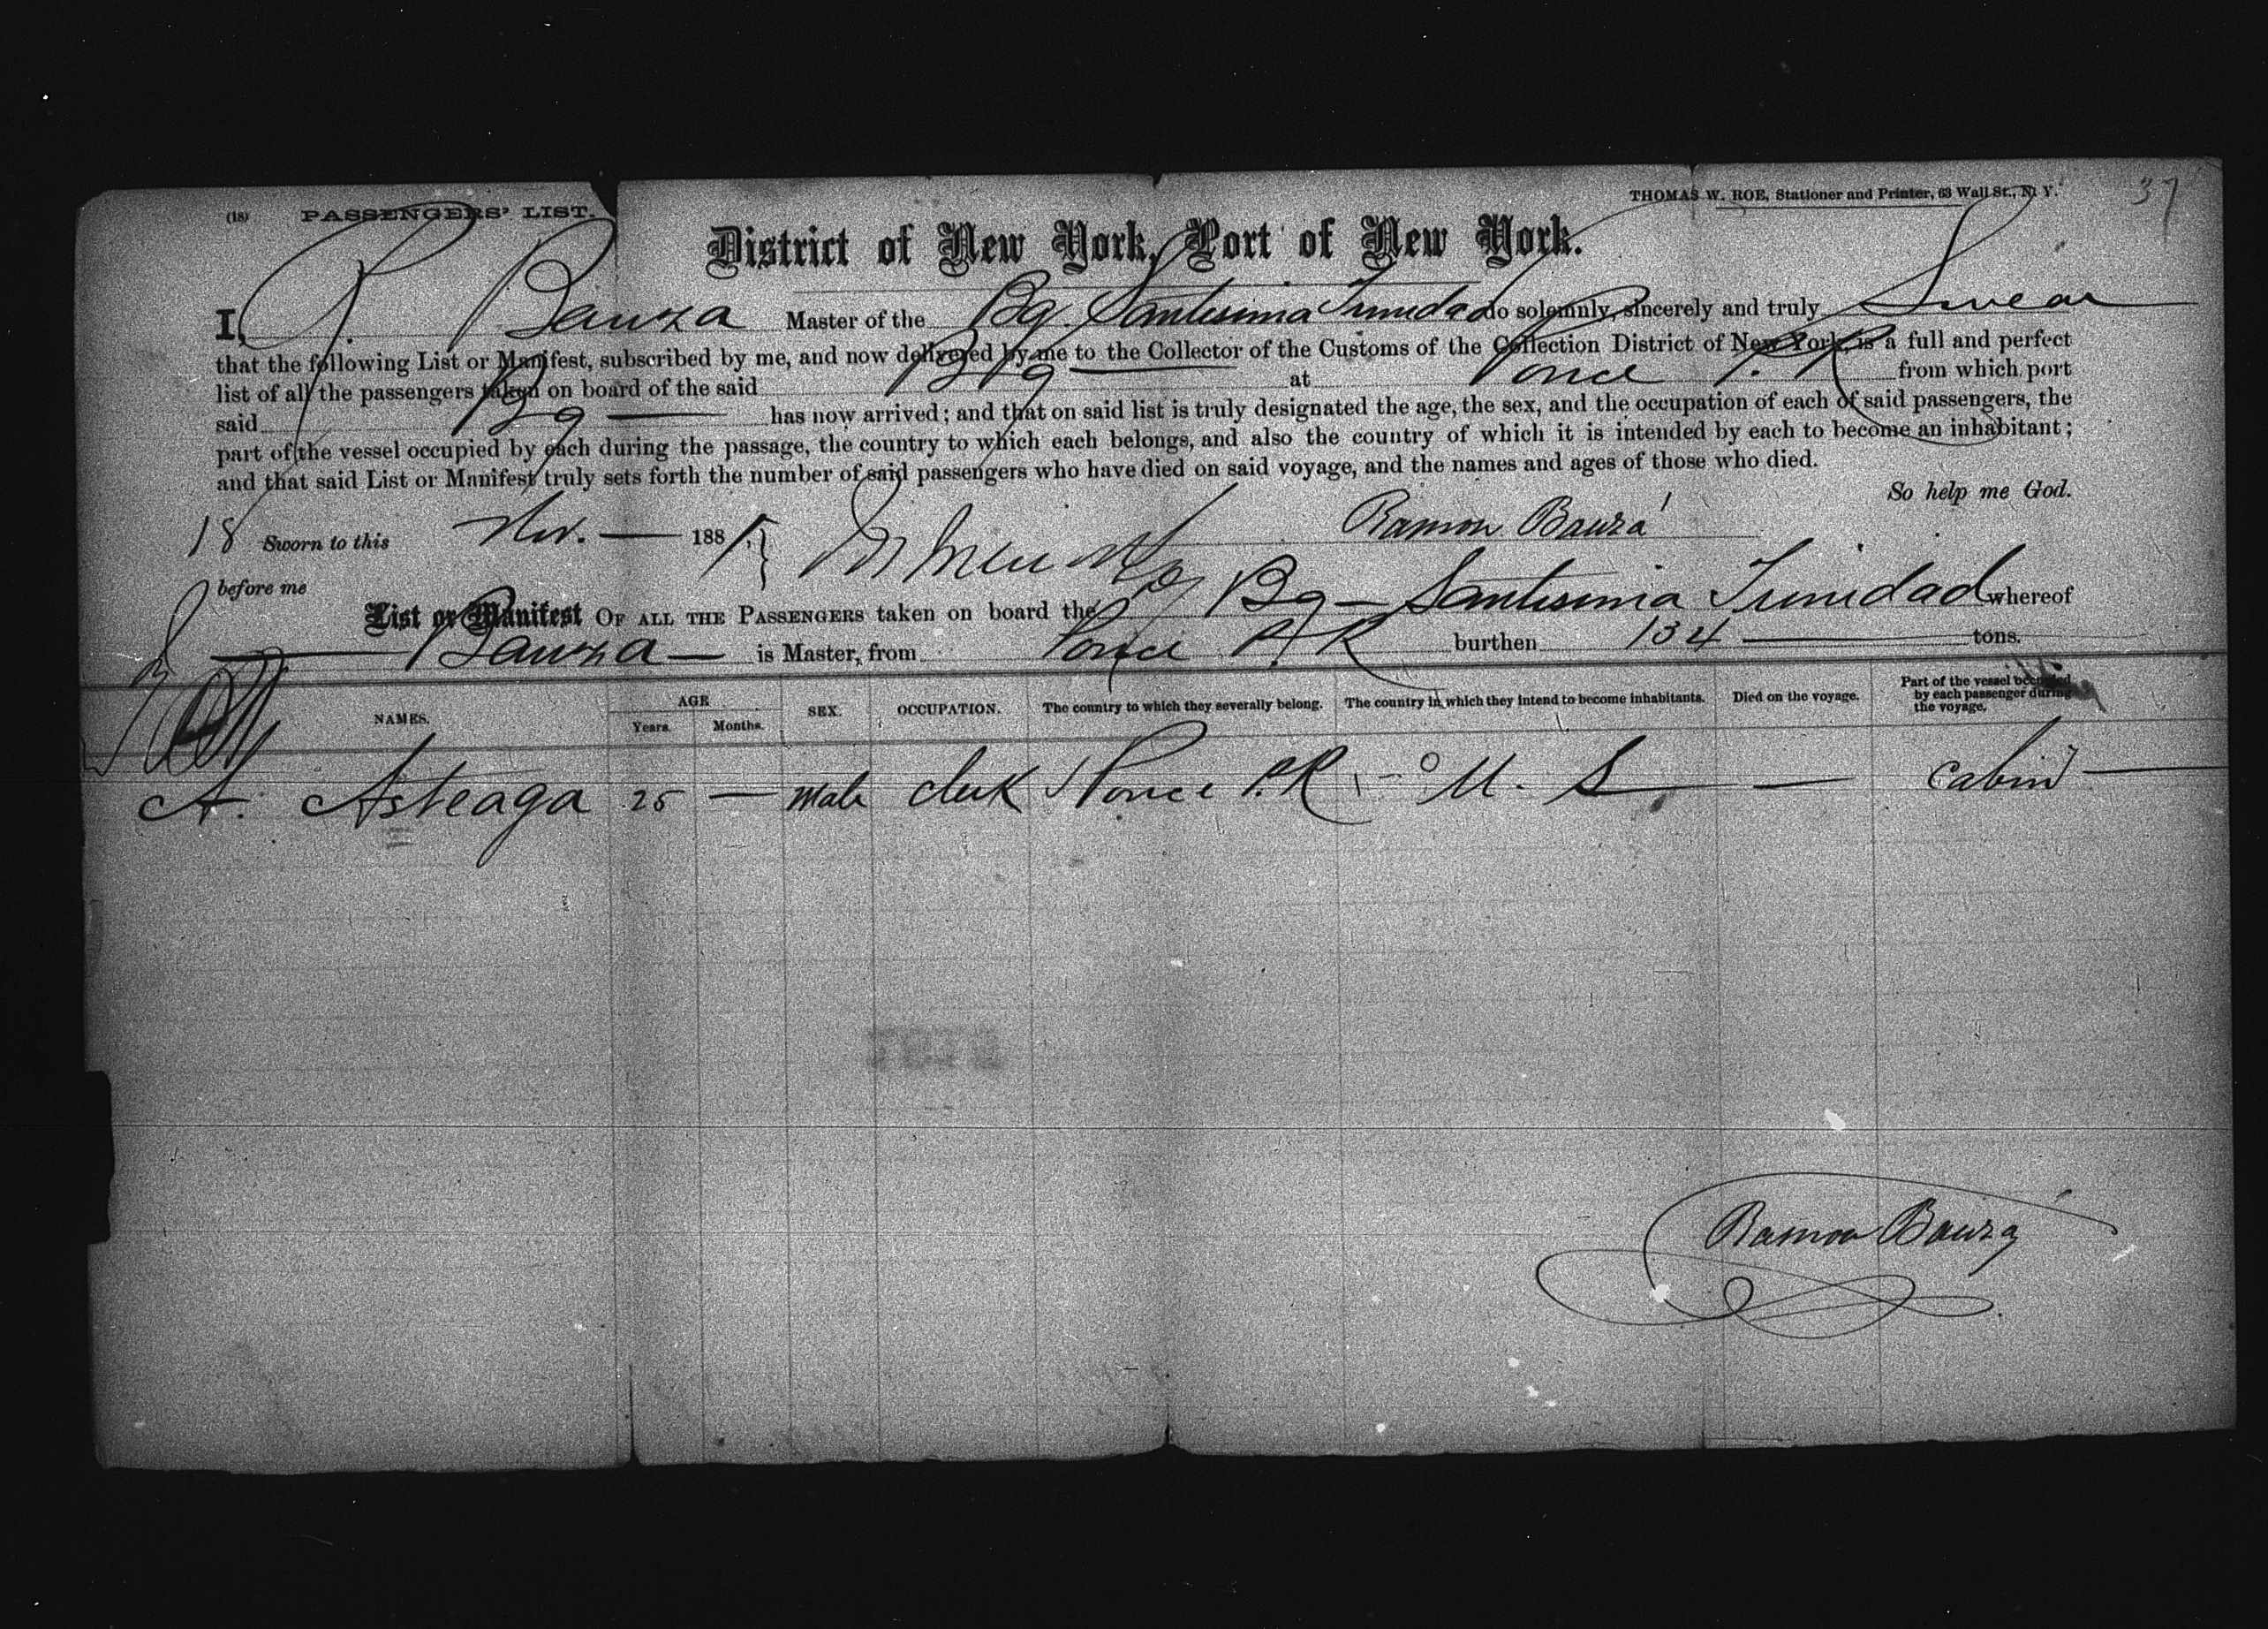 (18) PASSENGERS' LIST.
THOMAS W. ROE, Stationer and Printer, 63 Wall St., N. Y.
37
District of New York, Port of New York.
I, R. Bauza Master of the Bg Santisima Trinidad do solemnly, sincerely and truly Swear
that the following List or Manifest, subscribed by me, and now delivered by me to the Collector of the Customs of the Collection District of New York, is a full and perfect
list of all the passengers taken on board of the said Bg at Ponce P. R from which port
said Bg has now arrived; and that on said list is truly designated the age, the sex, and the occupation of each of said passengers, the
part of the vessel occupied by each during the passage, the country to which each belongs, and also the country of which it is intended by each to become an inhabitant;
and that said List or Manifest truly sets forth the number of said passengers who have died on said voyage, and the names and ages of those who died.
So help me God.
18 Sworn to this Nov. — 188
Ramon Bauzá
before me
List or Manifest OF ALL THE PASSENGERS taken on board the Bg — Santisima Trinidad whereof
— Bauza — is Master, from Ponce P. R burthen 134 — tons.
NAMES. AGE Years. Months. SEX. OCCUPATION. The country to which they severally belong. The country in which they intend to become inhabitants. Died on the voyage. Part of the vessel occupied by each passenger during the voyage.
A. Asteaga 25 — Male Clerk Ponce P. R U. S — Cabin —
Ramon Bauzá